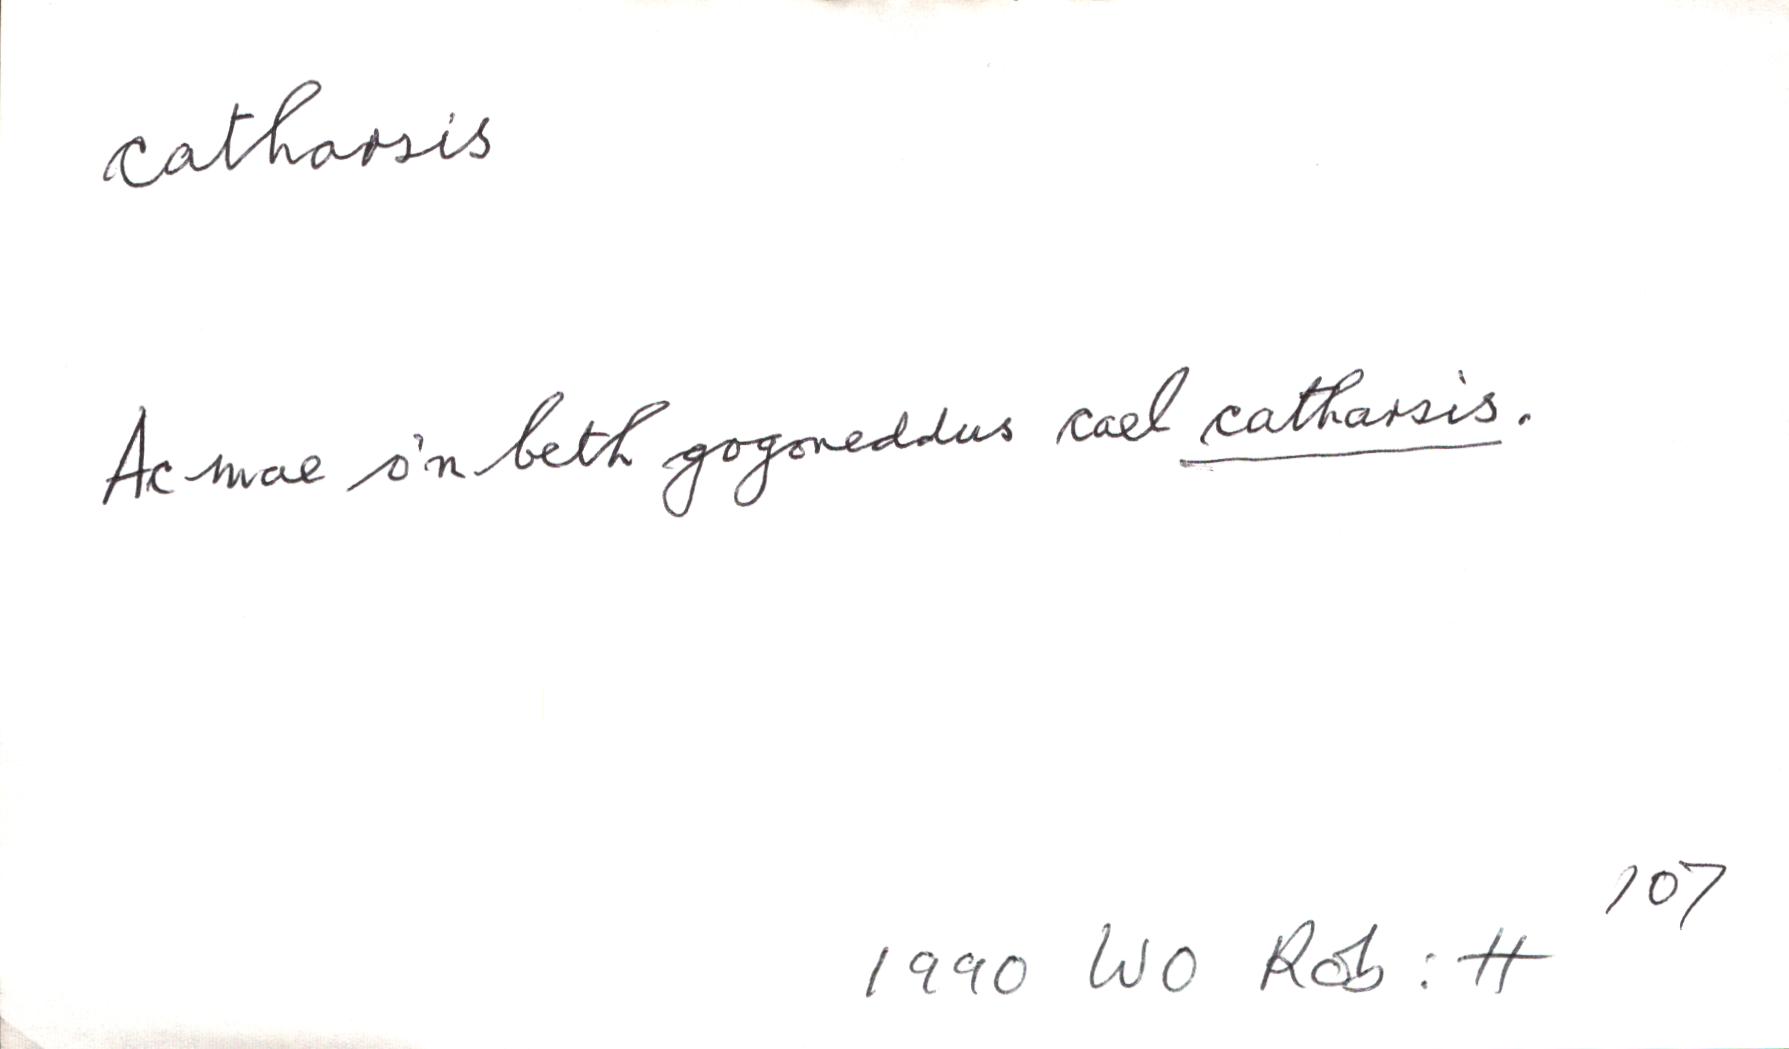 catharsis
Ac mae o'n beth gogoneddus cael catharsis.
107
1990 WO Rob: H